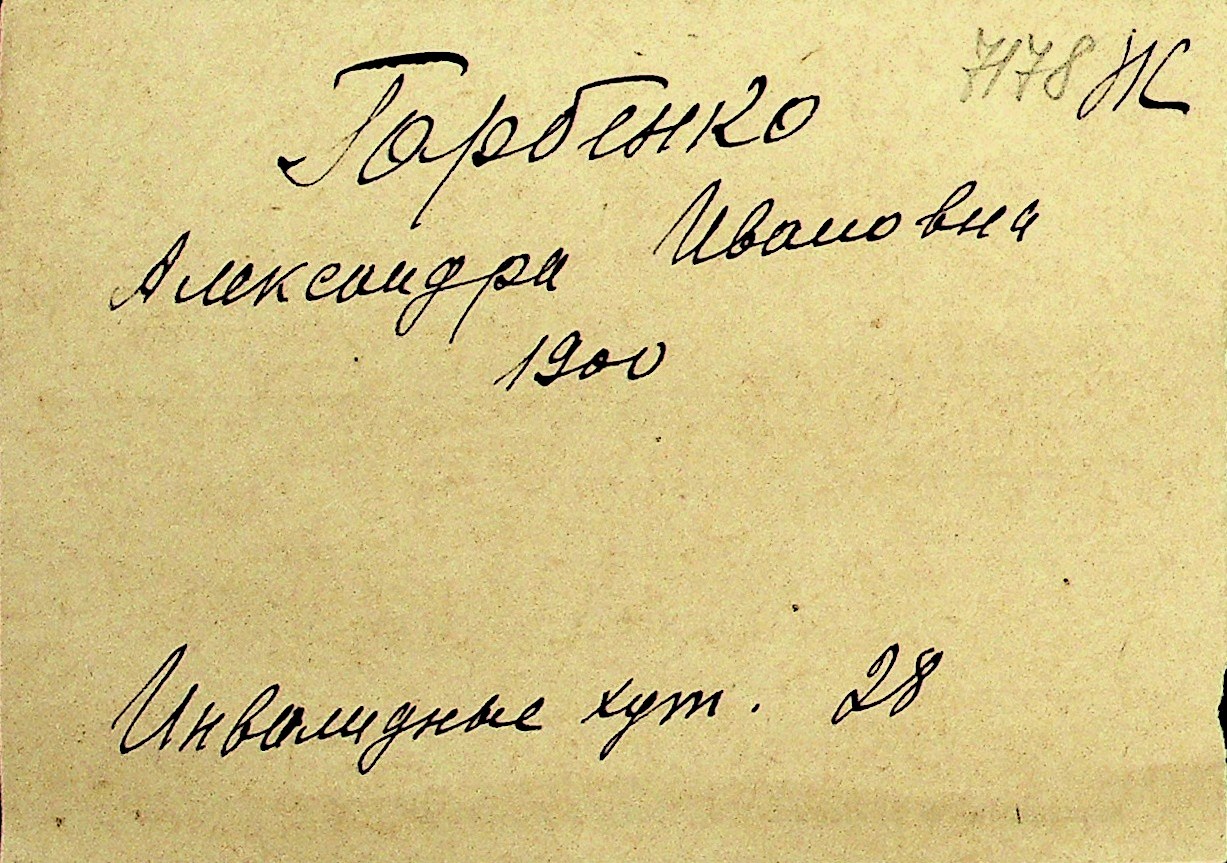 7178 Ж
Горбенко
Александра Ивановна
1900
Инвалидные хут. 28